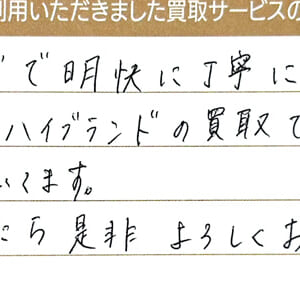 利用いただきました買取サービスの
で明快に丁寧に
ハイブランドの買取で
います。
たら是非よろしくお